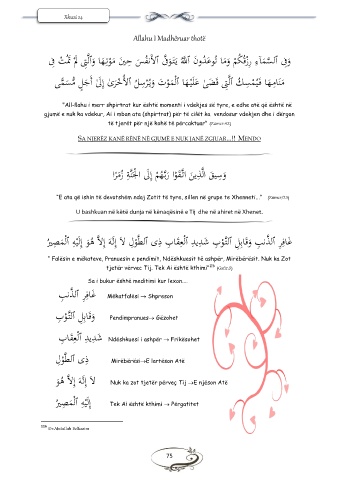 Xhuzi 24
Allahu I Madhëruar thotë
وَفِى ٱلسَّمَآءِ رِزْقُكُمْ وَمَا تُوعَدُونَ ٱللَّهُ يَتَوَفَّى ٱلْأَنفُسَ حِينَ مَوْتِهَا وَٱلَّتِى لَمْ تَمُتْ فِى
مَنَامِهَا فَيُمْسِكُ ٱلَّتِى قَضَىٰ عَلَيْهَا ٱلْمَوْتَ وَيُرْسِلُ ٱلْأُخْرَىٰٓ إِلَىٰٓ أَجَلٍ مُّسَمًّى
"All-llahu i merr shpirtrat kur është momenti i vdekjes së tyre, e edhe atë që është në
gjumë e nuk ka vdekur, Ai i mban ata (shpirtrat) për të cilët ka vendosur vdekjen dhe i dërgon
të tjerët për një kohë të përcaktuar" (Zumer:42)
SA NJERËZ KANË RËNË NË GJUMË E NUK JANË ZGJUAR...!! MENDO
وَسِيقَ ٱلَّذِينَ ٱتَّقَوْا۟ رَبَّهُمْ إِلَى ٱلْجَنَّةِ زُمَرًا
"E ata që ishin të devotshëm ndaj Zotit të tyre, sillen në grupe te Xhenneti..." (Zumer:73)
U bashkuan në këtë dunja në kënaqësinë e Tij dhe në ahiret në Xhenet.
غَافِرِ ٱلذَّنۢبِ وَقَابِلِ ٱلتَّوْبِ شَدِيدِ ٱلْعِقَابِ ذِى ٱلطَّوْلِ لَآ إِلَٰهَ إِلَّا هُوَ إِلَيْهِ ٱلْمَصِيرُ
" Falësin e mëkateve, Pranuesin e pendimit, Ndëshkuesit të ashpër, Mirëbërësit. Nuk ka Zot
tjetër përveç Tij. Tek Ai është kthimi" (Gafir:3)
Sa i bukur është meditimi kur lexon...
غَافِرِ ٱلذَّنۢبِ Mëkatfalësi → Shpreson
وَقَابِلِ ٱلتَّوْبِ Pendimpranues→ Gëzohet
شَدِيدِ ٱلْعِقَابِ Ndëshkuesi i ashpër → Frikësohet
ذِى ٱلطَّوْلِ Mirëbërësi→E lartëson Atë
لَآ إِلَٰهَ إِلَّا هُوَ Nuk ka zot tjetër përveç Tij →E njëson Atë
إِلَيْهِ ٱلْمَصِيرُ Tek Ai është kthimi → Përgatitet
Dr.Abdullah Bulkasim
75